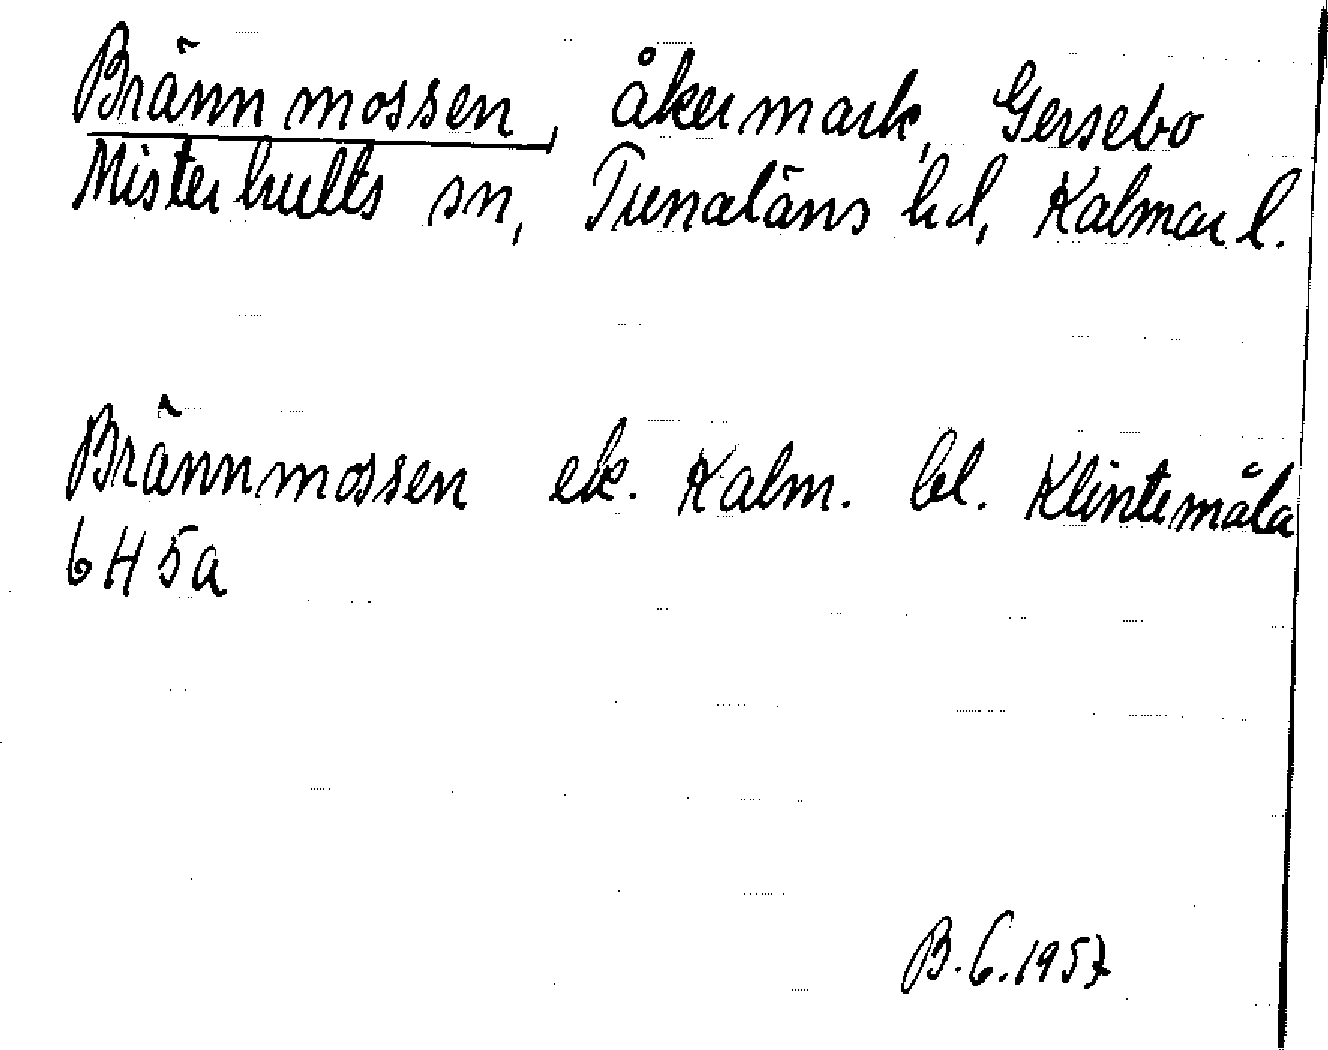 Brännmossen, åkermark, Gersebo
Misterhults sn, Tunaläns hd, Kalmar l.
Brännmossen ek. Kalm. bl. Klintemåla
6H5a
B.G.1957